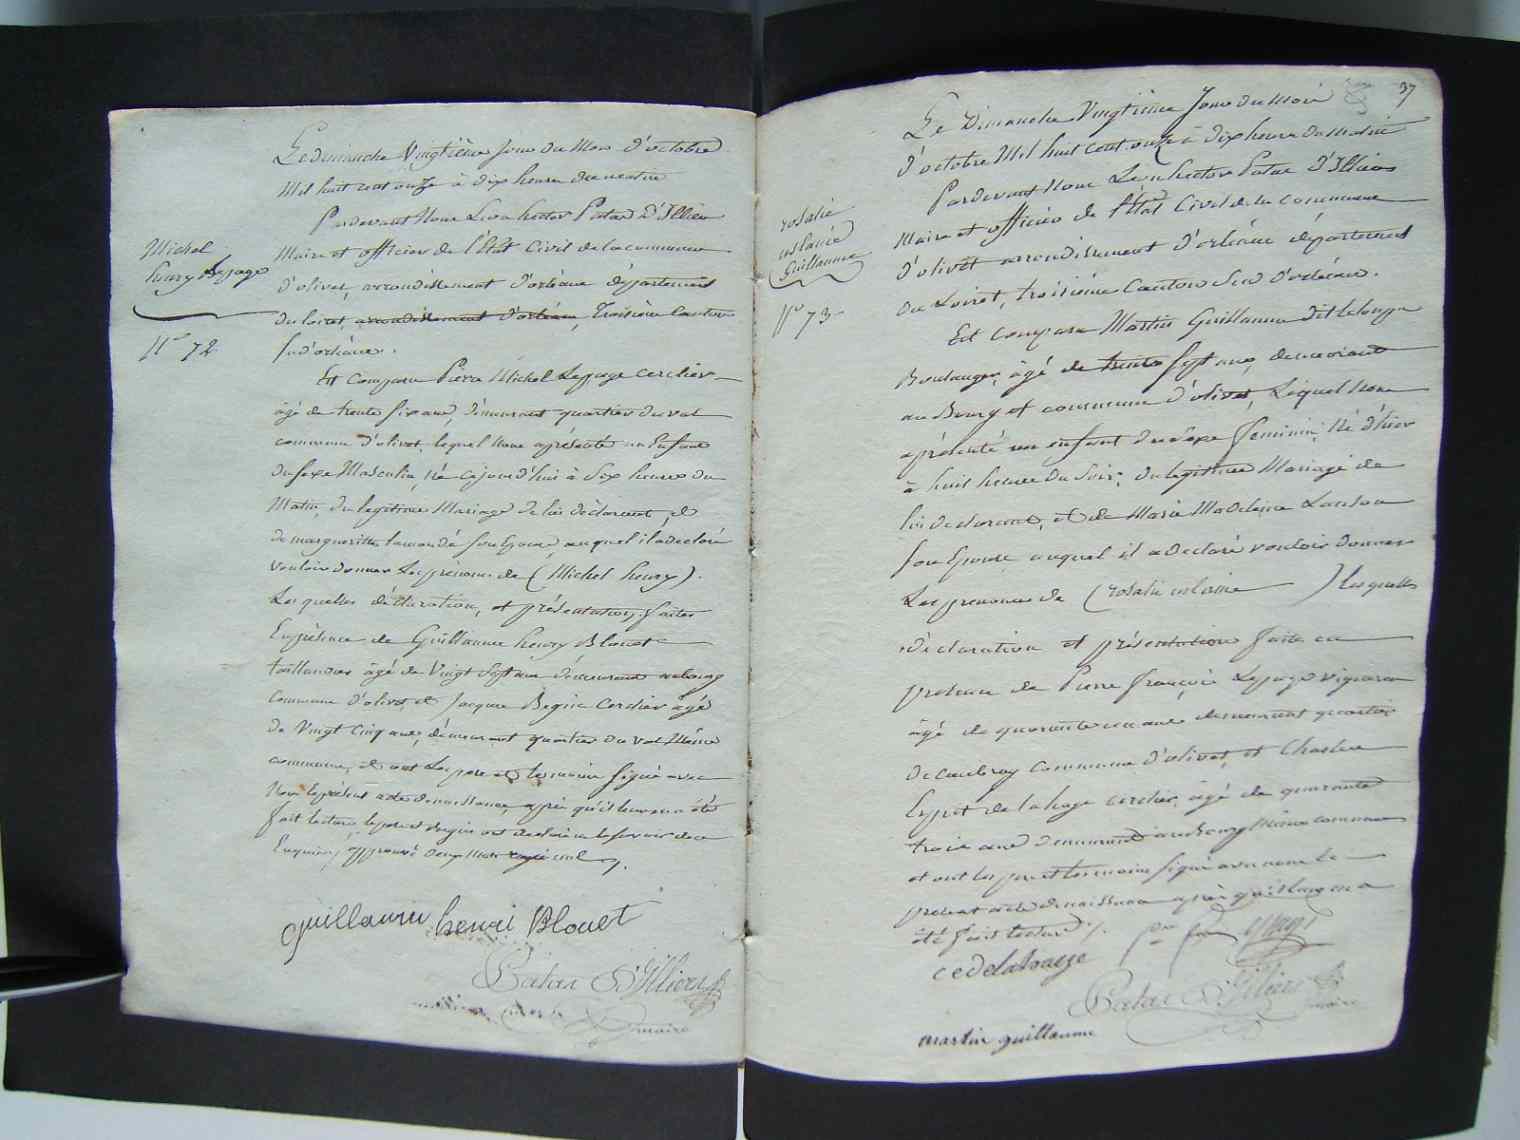 Le dimanche Vingtième Jour du Mois d'octobre
Mil huit cent onze à dix heures du matin
Pardevant Nous Léon hector Patas D'Illiers
Maire et officier de l'État Civil de la commune
d'olivet, arrondissement d'orléans département
du loiret, arrondissement d'orléans, Troisième Canton
Sud d'orléans.
Michel
henry Lepage
N° 72
Est Comparu Pierre Michel Lepage cerclier
âgé de trente six ans, demeurant quartier du val
commune d'olivet, lequel Nous a présenté un Enfant
du sexe Masculin, né cejourd'hui à Six heures du
Matin, du legitime Mariage de lui déclarant, et
de margueritte son Epouse, auquel il a declaré
vouloir donner Les prénoms de (Michel henry).
Les quelles déclaration, et présentation, faites
En présence de Guillaume henry Blouet
taillandier âgé de Vingt Sept ans demeurant au bourg
commune d'olivet, et Jacques Begin Cerclier âgé
de Vingt Cinq ans, demeurant quartier du val Même
commune, et ont Les pere et temoins signé avec
Nous le présent acte de naissance, après qu'il leur en a été
fait lecture, le pere et Begin ont declaré ne le savoir de ce
Enquis, approuvé mots rayé nul
guillaume henri Blouet
Patas D'Illiers
maire
37
Le Dimanche Vingtième Jour du Mois
d'octobre Mil huit cent onze à dix heures du Matin
Pardevant Nous Léon hector Patas D'Illiers
Maire et officier de l'État Civil de la commune
d'olivet arrondissement d'orléans département
du Loiret, troisième Canton Sud d'orléans.
rosalie
Guillaume
N° 73
Est comparu Martin Guillaume dit
Boulanger, âgé de trente Sept ans, demeurant
au Bourg et commune d'olivet, Lequel Nous
a présenté un enfant du séxe feminin, Né d'hier
à huit heures du Soir, du legitime Mariage de
lui declarant, et de Marie Madeleine Lanson
son Epouse auquel il a declaré vouloir donner
Les prenoms de (rosalie ) les quelles
déclaration et présentation faite en
présence de Pierre françois Lepage vigneron
âgé de quarante un ans demeurant quartier
de Caubray commune d'olivet, et Charles
Esprit de la hage cerclier, âgé de quarante
trois ans demeurant au Bourg Même commune
et ont les pere et temoins signé avec nous le
présent acte de naissance après qu'il leur en a
été fait lecture
cedelahaage
Patas D'Illiers
maire
martin guillaume